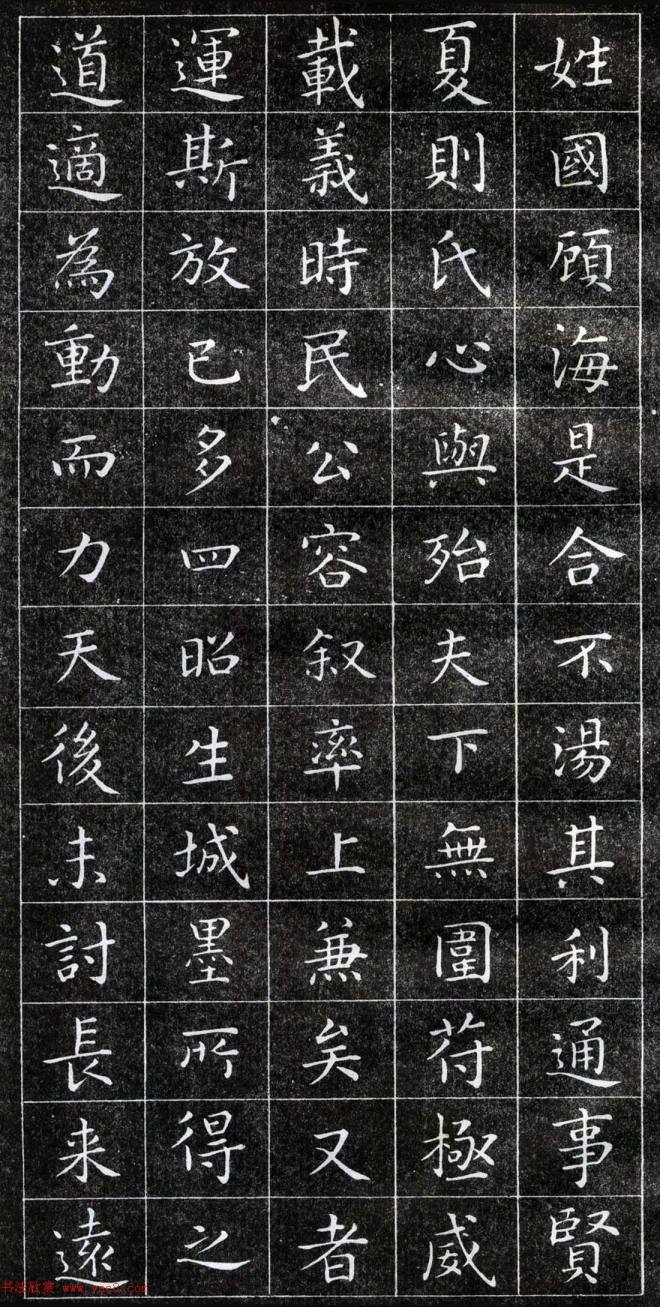 姓國頋海是合不湯其利通事賢
夏則氏心與殆夫下無圍苻極威
載義時民公容叙率上兼矣又者
運斯放已多四昭生城墨所得之
道適為動而力天後未討長来遠
书法欣赏 www.yac8.com